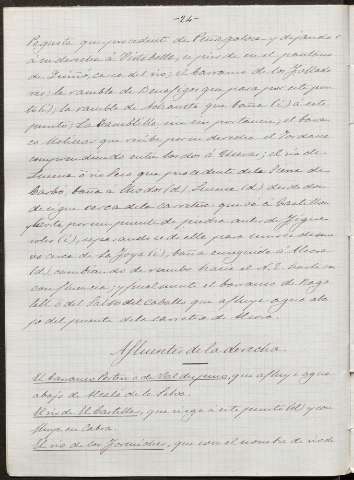 -24-
Pequeña que procedente de Peñagolosa y dejando
á su derecha á Vistabella, se pierde en el pantano
de , cerca del rio; el barranco de los
; la rambla de Benafigos que pasa por este pun
to (i); la rambla de Atzaneta que baña (i) á este
punto; La Ramblilla sin importancia; el barran
co que recibe por su derecha el
comprendiendo entre los dos á Useras; el rio de
Lucena ó rio Seco que procedente de la Sierra de
baña á (d) Lucena (d) desde don
de sigue cerca de la carretera que va á Castellon
y corta por un puente de piedra antes de Figue
roles (i), separandose de ella para correr de nue
vo cerca de La Foya (i), baña enseguida á Alcora
(d) cambiando de rumbo hacia el N.E. hasta su
confluencia; y finalmente el barranco de
del Salto del Caballo que afluye agua aba
jo del puente de la carretera de Alcora.
Afluentes de la derecha.
El barranco de , que afluye agua
abajo de Alcalá de la Selva.
El rio de El Castellar, que riega á este punto (d) y con
fluye en Cabra.
El rio de los , que con el nombre de rio de